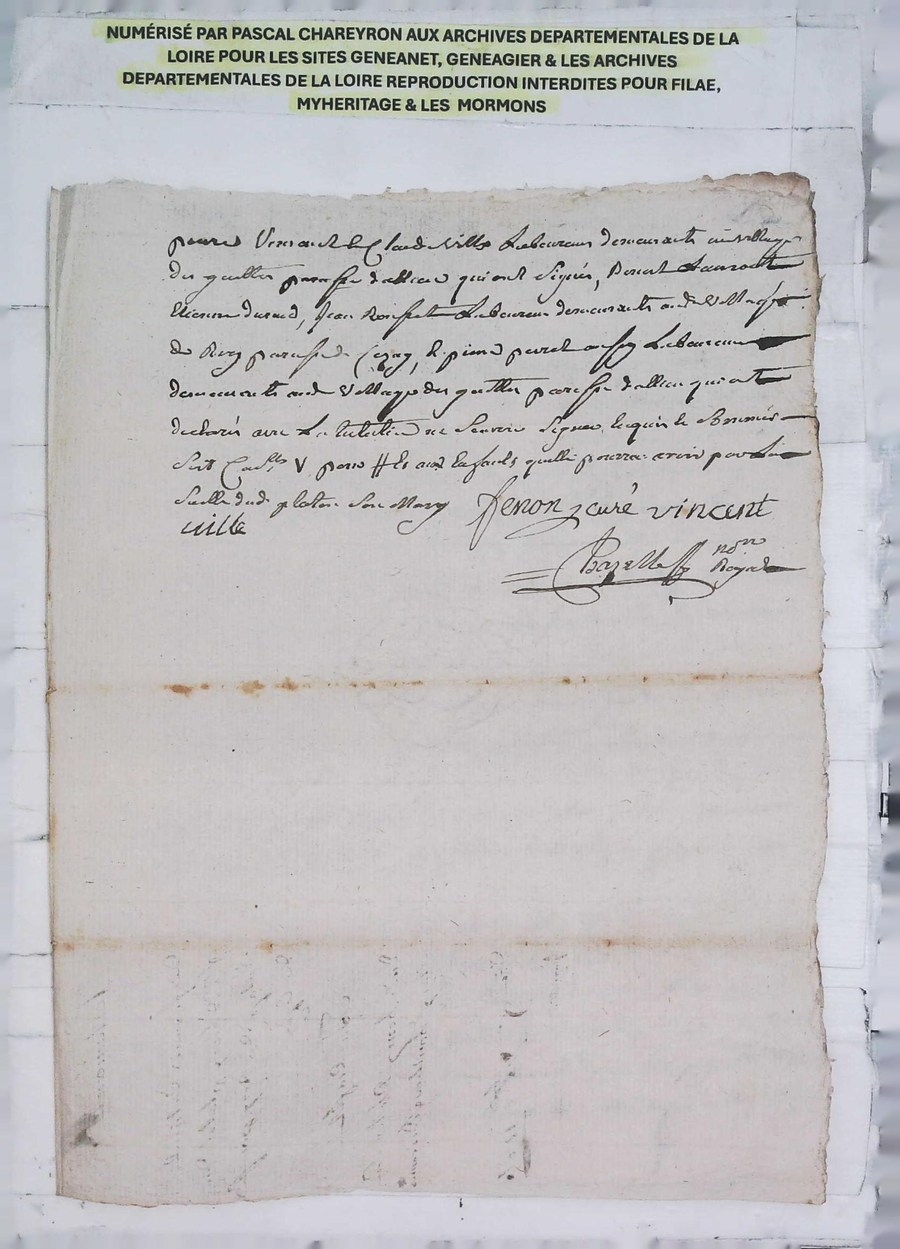 NUMÉRISÉ PAR PASCAL CHAREYRON AUX ARCHIVES DEPARTEMENTALES DE LA
LOIRE POUR LES SITES GENEANET, GENEAGIER & LES ARCHIVES
DEPARTEMENTALES DE LA LOIRE REPRODUCTION INTERDITES POUR FILAE,
MYHERITAGE & LES MORMONS
Vincent & Claude Ville Laboureurs demeurants au village
des parosse d'allieu qui ont signés, Benoit
Etienne durand, Jean Laboureurs demeurants aud. Village
de parosse de Cezay, & pierre aussy Laboureurs
demeurants aud. Village des parosse d'allieu qui ont
declarés avec La tutatrice ne Scavoir Signer, enquis & sommés
pour & aux Enfants quelle pourra avoir
dud. Son Mary fenon curé vincent
ville
Chazelle nore
Royal